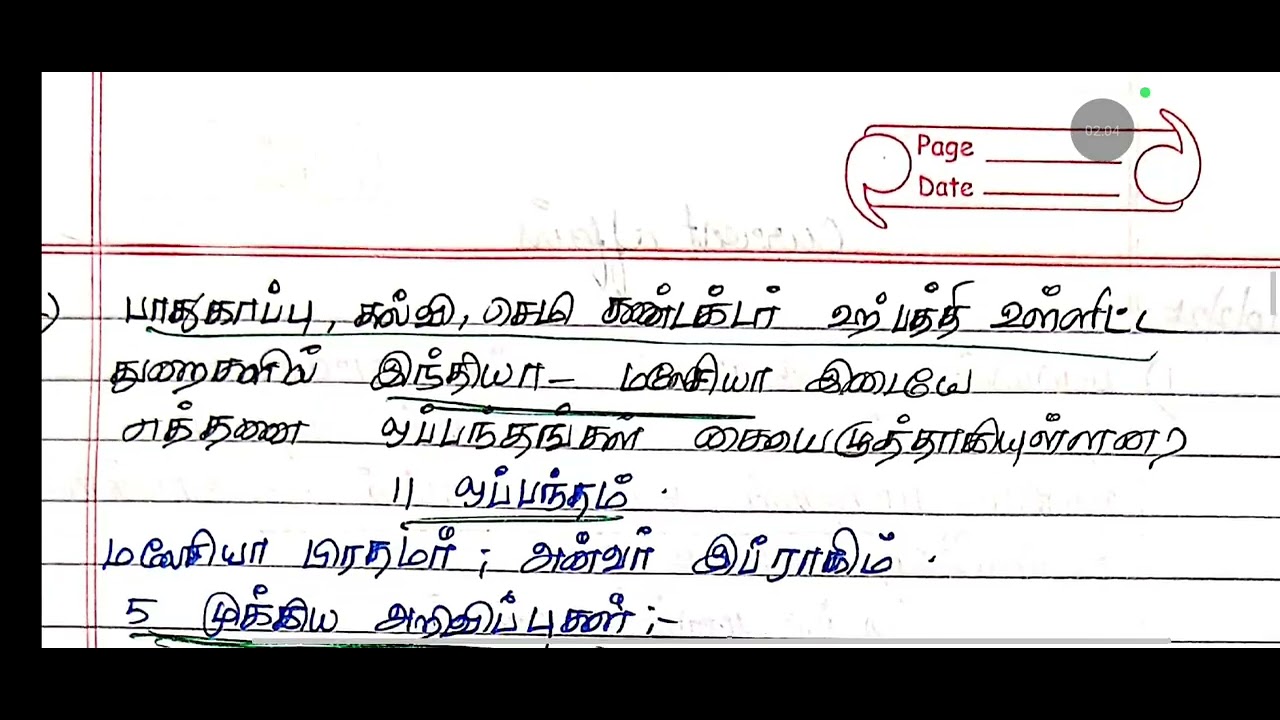 02:04
Page
Date
) பாதுகாப்பு, கல்வி, செமி கண்டக்டர் உற்பத்தி உள்ளிட்ட
துறைகளில் இந்தியா - மலேசியா இடையே
எத்தனை ஒப்பந்தங்கள் கையெழுத்தாகியுள்ளன?
11 ஒப்பந்தம்.
மலேசியா பிரதமர் ; அன்வர் இப்ராகிம்.
5 முக்கிய அறிவிப்புகள் ;-